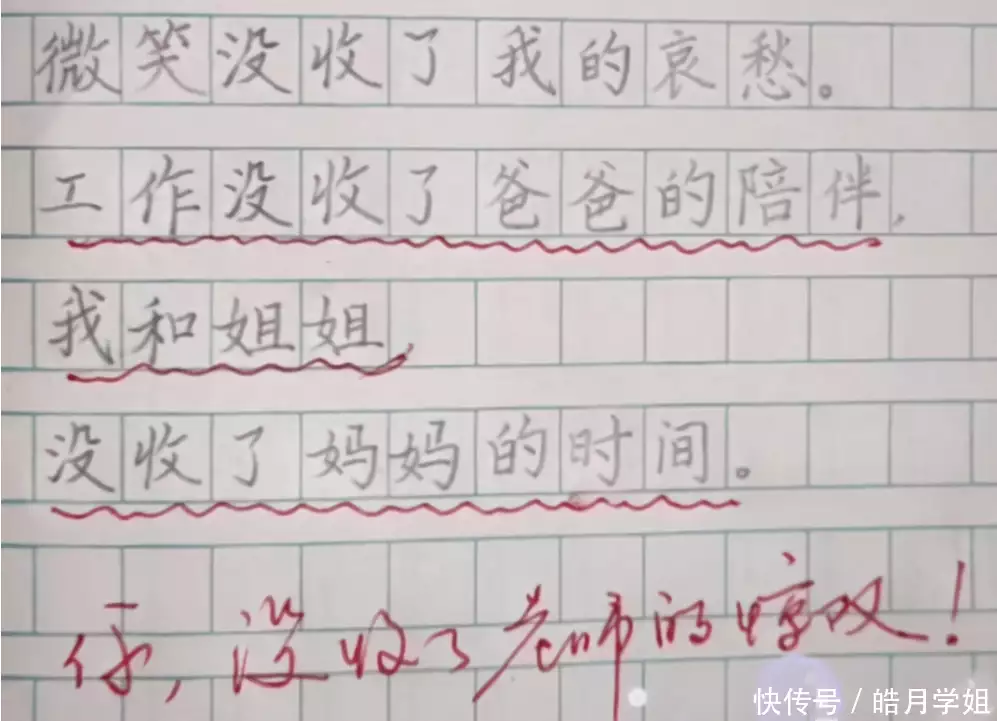 微笑没收了我的哀愁。
工作没收了爸爸的陪伴,
我和姐姐,
没收了妈妈的时间。
你,没收了老师的惊叹!
快传号/皓月学姐